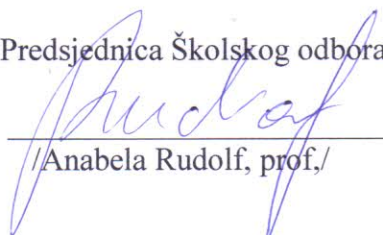 Predsjednica Školskog odbora
Rudolf
/Anabela Rudolf, prof,/